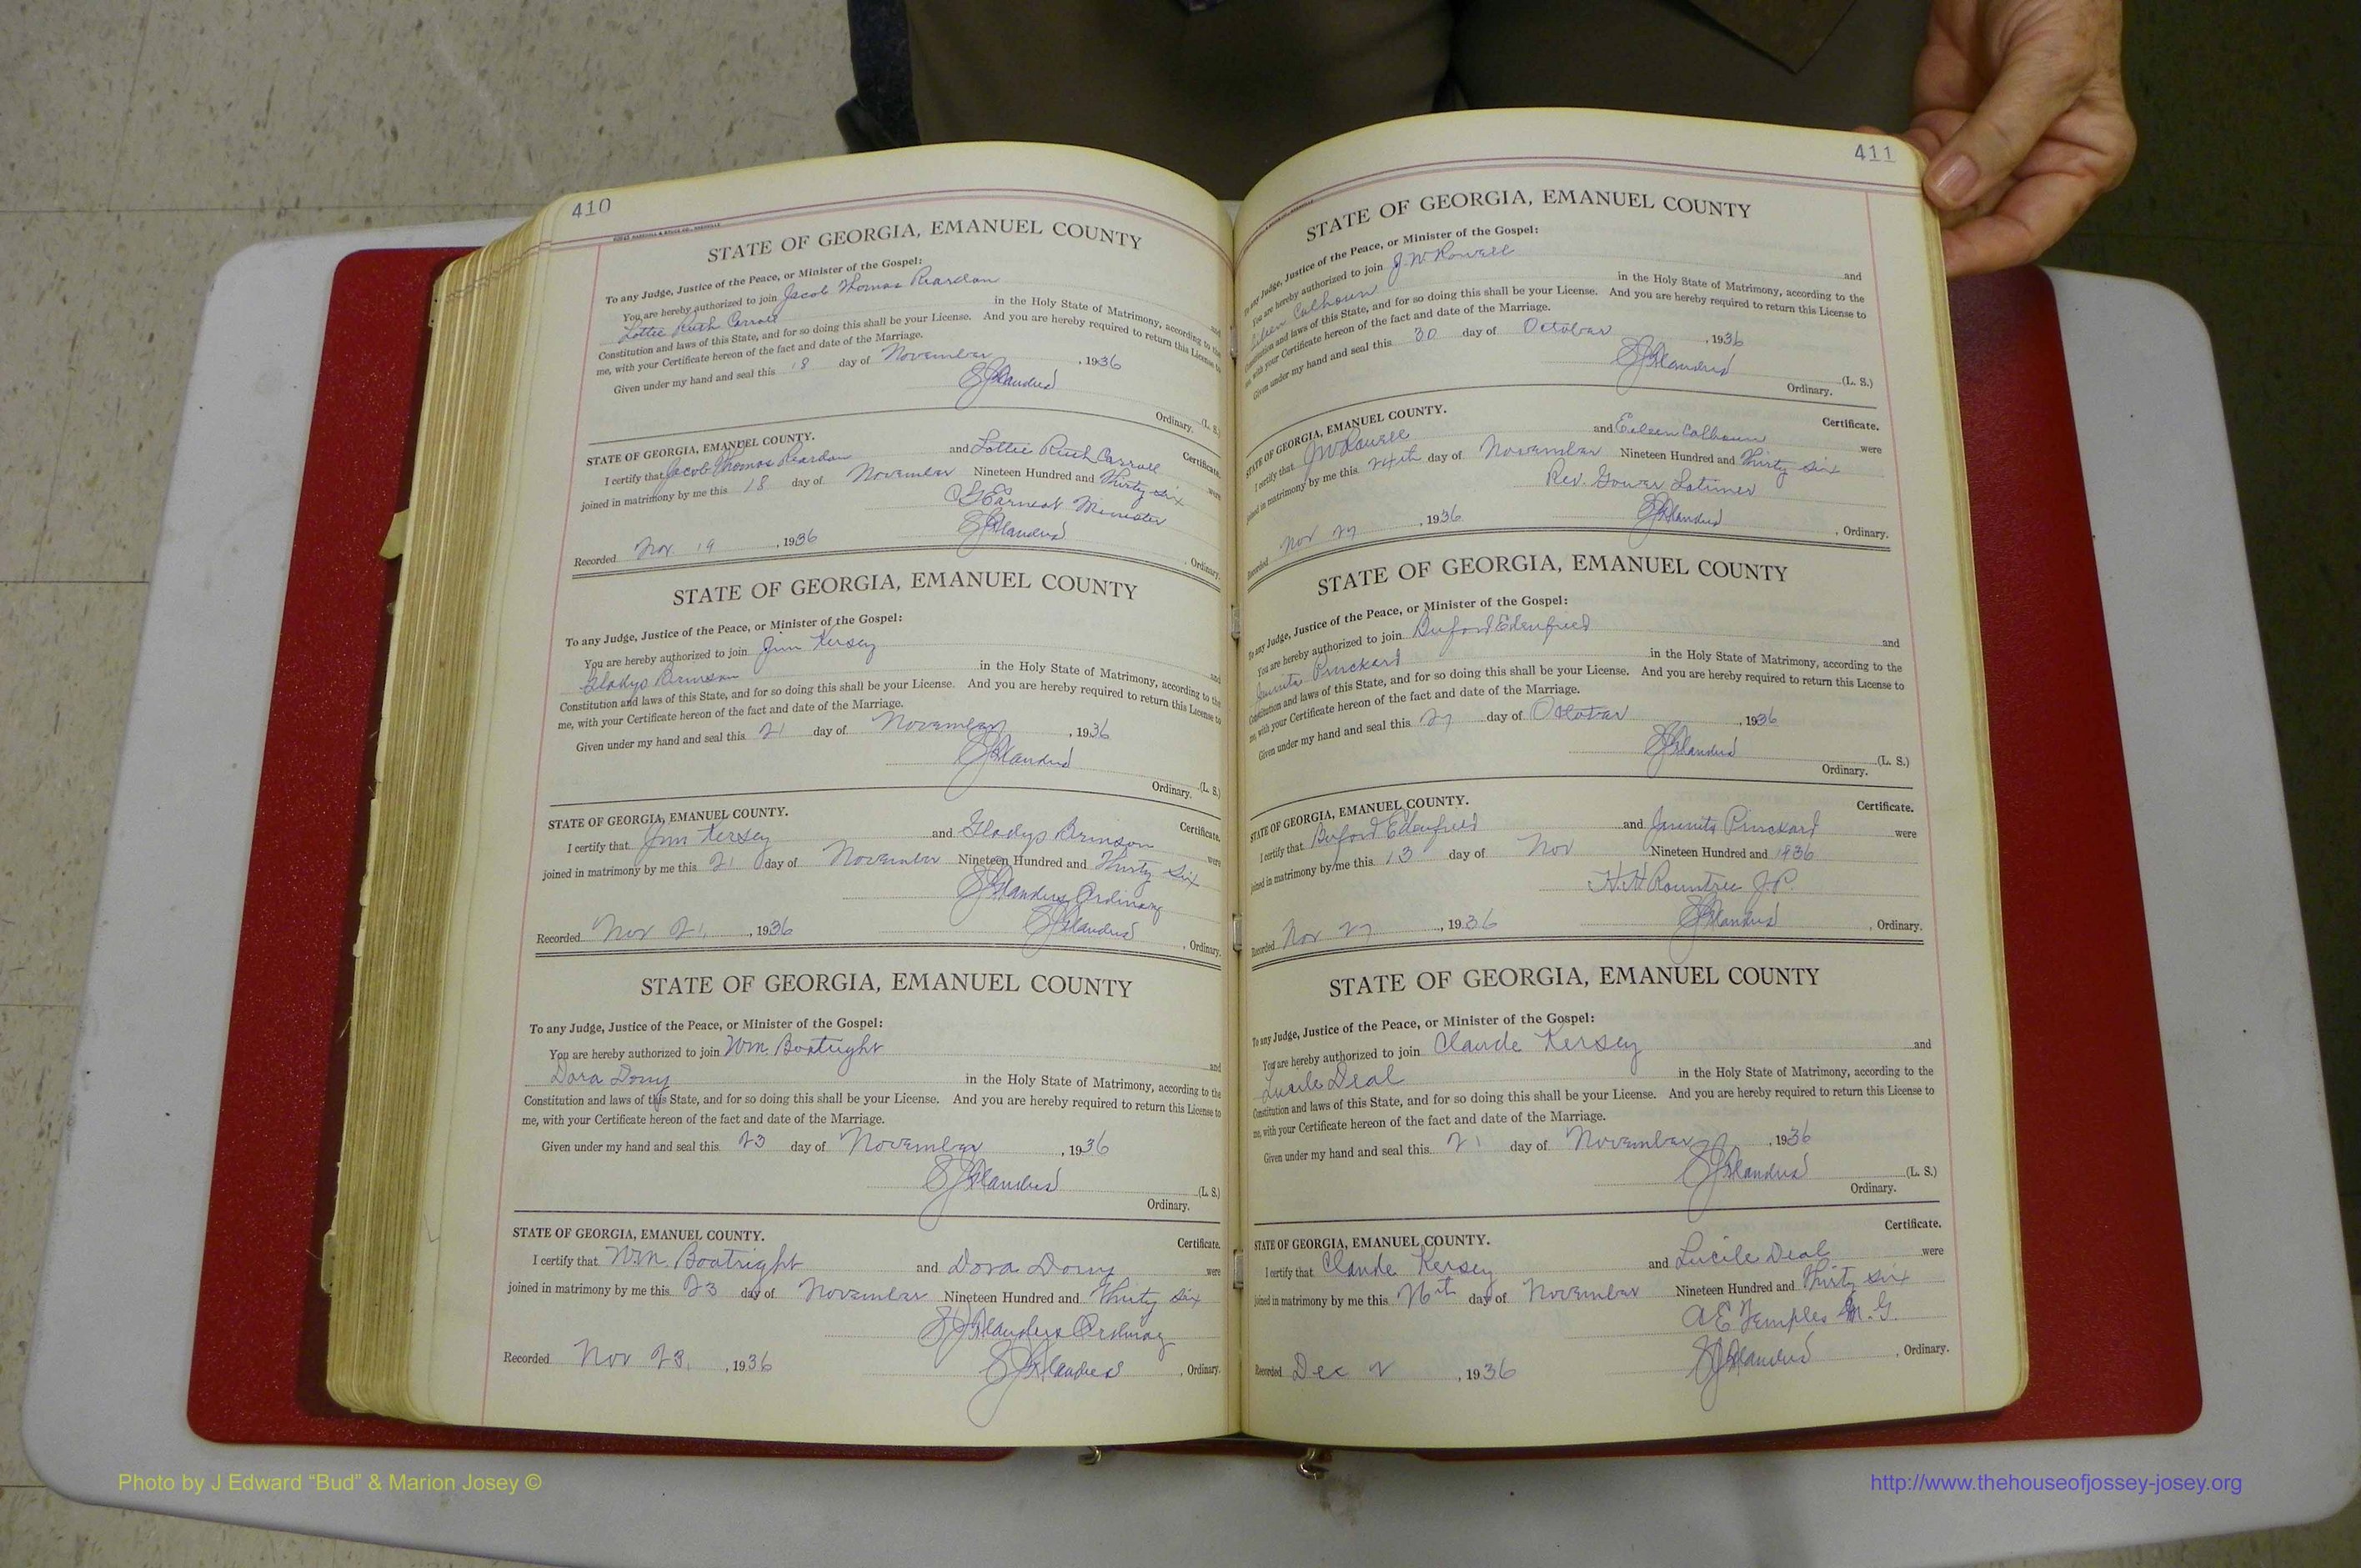 410
STATE OF GEORGIA, EMANUEL COUNTY
To any Judge, Justice of the Peace, or Minister of the Gospel:
You are hereby authorized to join Jacob Thomas Reardon and
Lottie Ruth Carroll in the Holy State of Matrimony, according to the
Constitution and laws of this State, and for so doing this shall be your License. And you are hereby required to return this License to
me, with your Certificate hereon of the fact and date of the Marriage.
Given under my hand and seal this 18 day of November, 1936
(L. S.)
Ordinary.
STATE OF GEORGIA, EMANUEL COUNTY. Certificate.
I certify that Jacob Thomas Reardon and Lottie Ruth Carroll were
joined in matrimony by me this 18 day of November Nineteen Hundred and Thirty six
Earnest Minister
Recorded Nov. 19, 1936 , Ordinary.
STATE OF GEORGIA, EMANUEL COUNTY
To any Judge, Justice of the Peace, or Minister of the Gospel:
You are hereby authorized to join Jim Kersey and
Gladys Brinson in the Holy State of Matrimony, according to the
Constitution and laws of this State, and for so doing this shall be your License. And you are hereby required to return this License to
me, with your Certificate hereon of the fact and date of the Marriage.
Given under my hand and seal this 21 day of November, 1936
(L. S.)
Ordinary.
STATE OF GEORGIA, EMANUEL COUNTY. Certificate.
I certify that Jim Kersey and Gladys Brinson were
joined in matrimony by me this 21 day of November Nineteen Hundred and Thirty Six
Ordinary
Recorded Nov 21, 1936 , Ordinary.
STATE OF GEORGIA, EMANUEL COUNTY
To any Judge, Justice of the Peace, or Minister of the Gospel:
You are hereby authorized to join Wm. Boatright and
Dora in the Holy State of Matrimony, according to the
Constitution and laws of this State, and for so doing this shall be your License. And you are hereby required to return this License to
me, with your Certificate hereon of the fact and date of the Marriage.
Given under my hand and seal this 23 day of November, 1936
(L. S.)
Ordinary.
STATE OF GEORGIA, EMANUEL COUNTY. Certificate.
I certify that Wm. Boatright and Dora were
joined in matrimony by me this 23 day of November Nineteen Hundred and Thirty six
Ordinary
Recorded Nov 23, 1936 , Ordinary.
411
STATE OF GEORGIA, EMANUEL COUNTY
To any Judge, Justice of the Peace, or Minister of the Gospel:
You are hereby authorized to join J. W. Rowell and
Eileen Calhoun in the Holy State of Matrimony, according to the
Constitution and laws of this State, and for so doing this shall be your License. And you are hereby required to return this License to
me, with your Certificate hereon of the fact and date of the Marriage.
Given under my hand and seal this 30 day of October, 1936
(L. S.)
Ordinary.
STATE OF GEORGIA, EMANUEL COUNTY. Certificate.
I certify that J W Rowell and Eileen Calhoun were
joined in matrimony by me this 24th day of November Nineteen Hundred and Thirty six
Rev. Gower Latimer
Recorded Nov 27, 1936 , Ordinary.
STATE OF GEORGIA, EMANUEL COUNTY
To any Judge, Justice of the Peace, or Minister of the Gospel:
You are hereby authorized to join Buford Edenfield and
Juanita in the Holy State of Matrimony, according to the
Constitution and laws of this State, and for so doing this shall be your License. And you are hereby required to return this License to
me, with your Certificate hereon of the fact and date of the Marriage.
Given under my hand and seal this 27 day of October, 1936
(L. S.)
Ordinary.
STATE OF GEORGIA, EMANUEL COUNTY. Certificate.
I certify that Buford Edenfield and Juanita were
joined in matrimony by me this 13 day of Nov Nineteen Hundred and 1936
H H Rountree J.P.
Recorded Nov 27, 1936 , Ordinary.
STATE OF GEORGIA, EMANUEL COUNTY
To any Judge, Justice of the Peace, or Minister of the Gospel:
You are hereby authorized to join Claude Kersey and
Lucile Deal in the Holy State of Matrimony, according to the
Constitution and laws of this State, and for so doing this shall be your License. And you are hereby required to return this License to
me, with your Certificate hereon of the fact and date of the Marriage.
Given under my hand and seal this 21 day of November, 1936
(L. S.)
Ordinary.
STATE OF GEORGIA, EMANUEL COUNTY. Certificate.
I certify that Claude Kersey and Lucile Deal were
joined in matrimony by me this 26th day of November Nineteen Hundred and Thirty six
A E Temples M. G.
Recorded Dec 2, 1936 , Ordinary.
Photo by J Edward “Bud” & Marion Josey ©
http://www.thehouseofjossey-josey.org